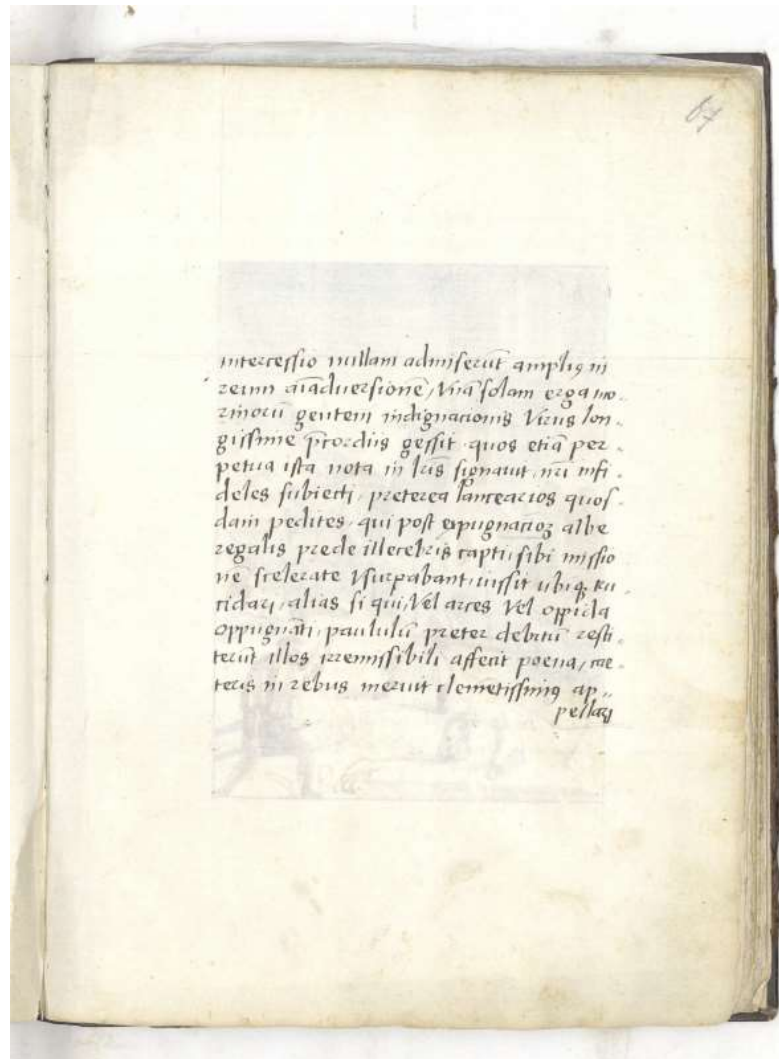 67
intercessio nullam admiserūt amplīꝰ in
reum aīaduersionē, Vnā solam erga mo-
rinorū gentem indignacionis Virus lon-
gissime p̄cordiis gessit. quos etiā per-
petua ista nota in lr̄is signauit, nr̄i infi-
deles subiecti, preterea lancearios quos-
dam pedites, qui post expugnacioꝫ albe
regalis prede illecebris capti, sibi missio
nē scelerate Vsurpabant, iussit ubiqꝫ tru-
cidari, alias si qui, Vel arces Vel oppida
oppugnāti, paululū preter debitū resti-
terūt illos irremissibili affecit poena, cae-
teris in rebus meruit clemētissimꝰ ap-
pellari